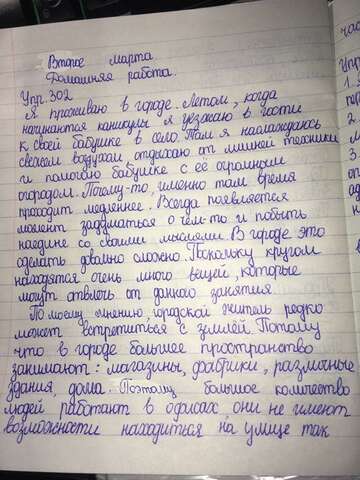 Второе марта
Домашняя работа.
Упр. 302
Я проживаю в городе. Летом, когда
начинаются каникулы я уезжаю в гости
к своей бабушке в село. Там я наслаждаюсь
свежим воздухом, отдыхаю от лишней техники
и помогаю бабушке с её огромным
огородом. Почему-то, именно там время
проходит медленнее. Всегда появляется
момент задуматься о чём-то и побыть
наедине со своими мыслями. В городе это
сделать довольно сложно. Поскольку кругом
находятся очень много вещей, которые
могут отвлечь от данного занятия
По моему мнению, городской житель редко
может встретиться с землёй. Потому
что в городе большее пространство
занимают: магазины, фабрики, различные
здания, дома. Поэтому большое количество
людей работают в офисах, они не имеют
возможности находиться на улице так
час
Упр
1.
2.
3.